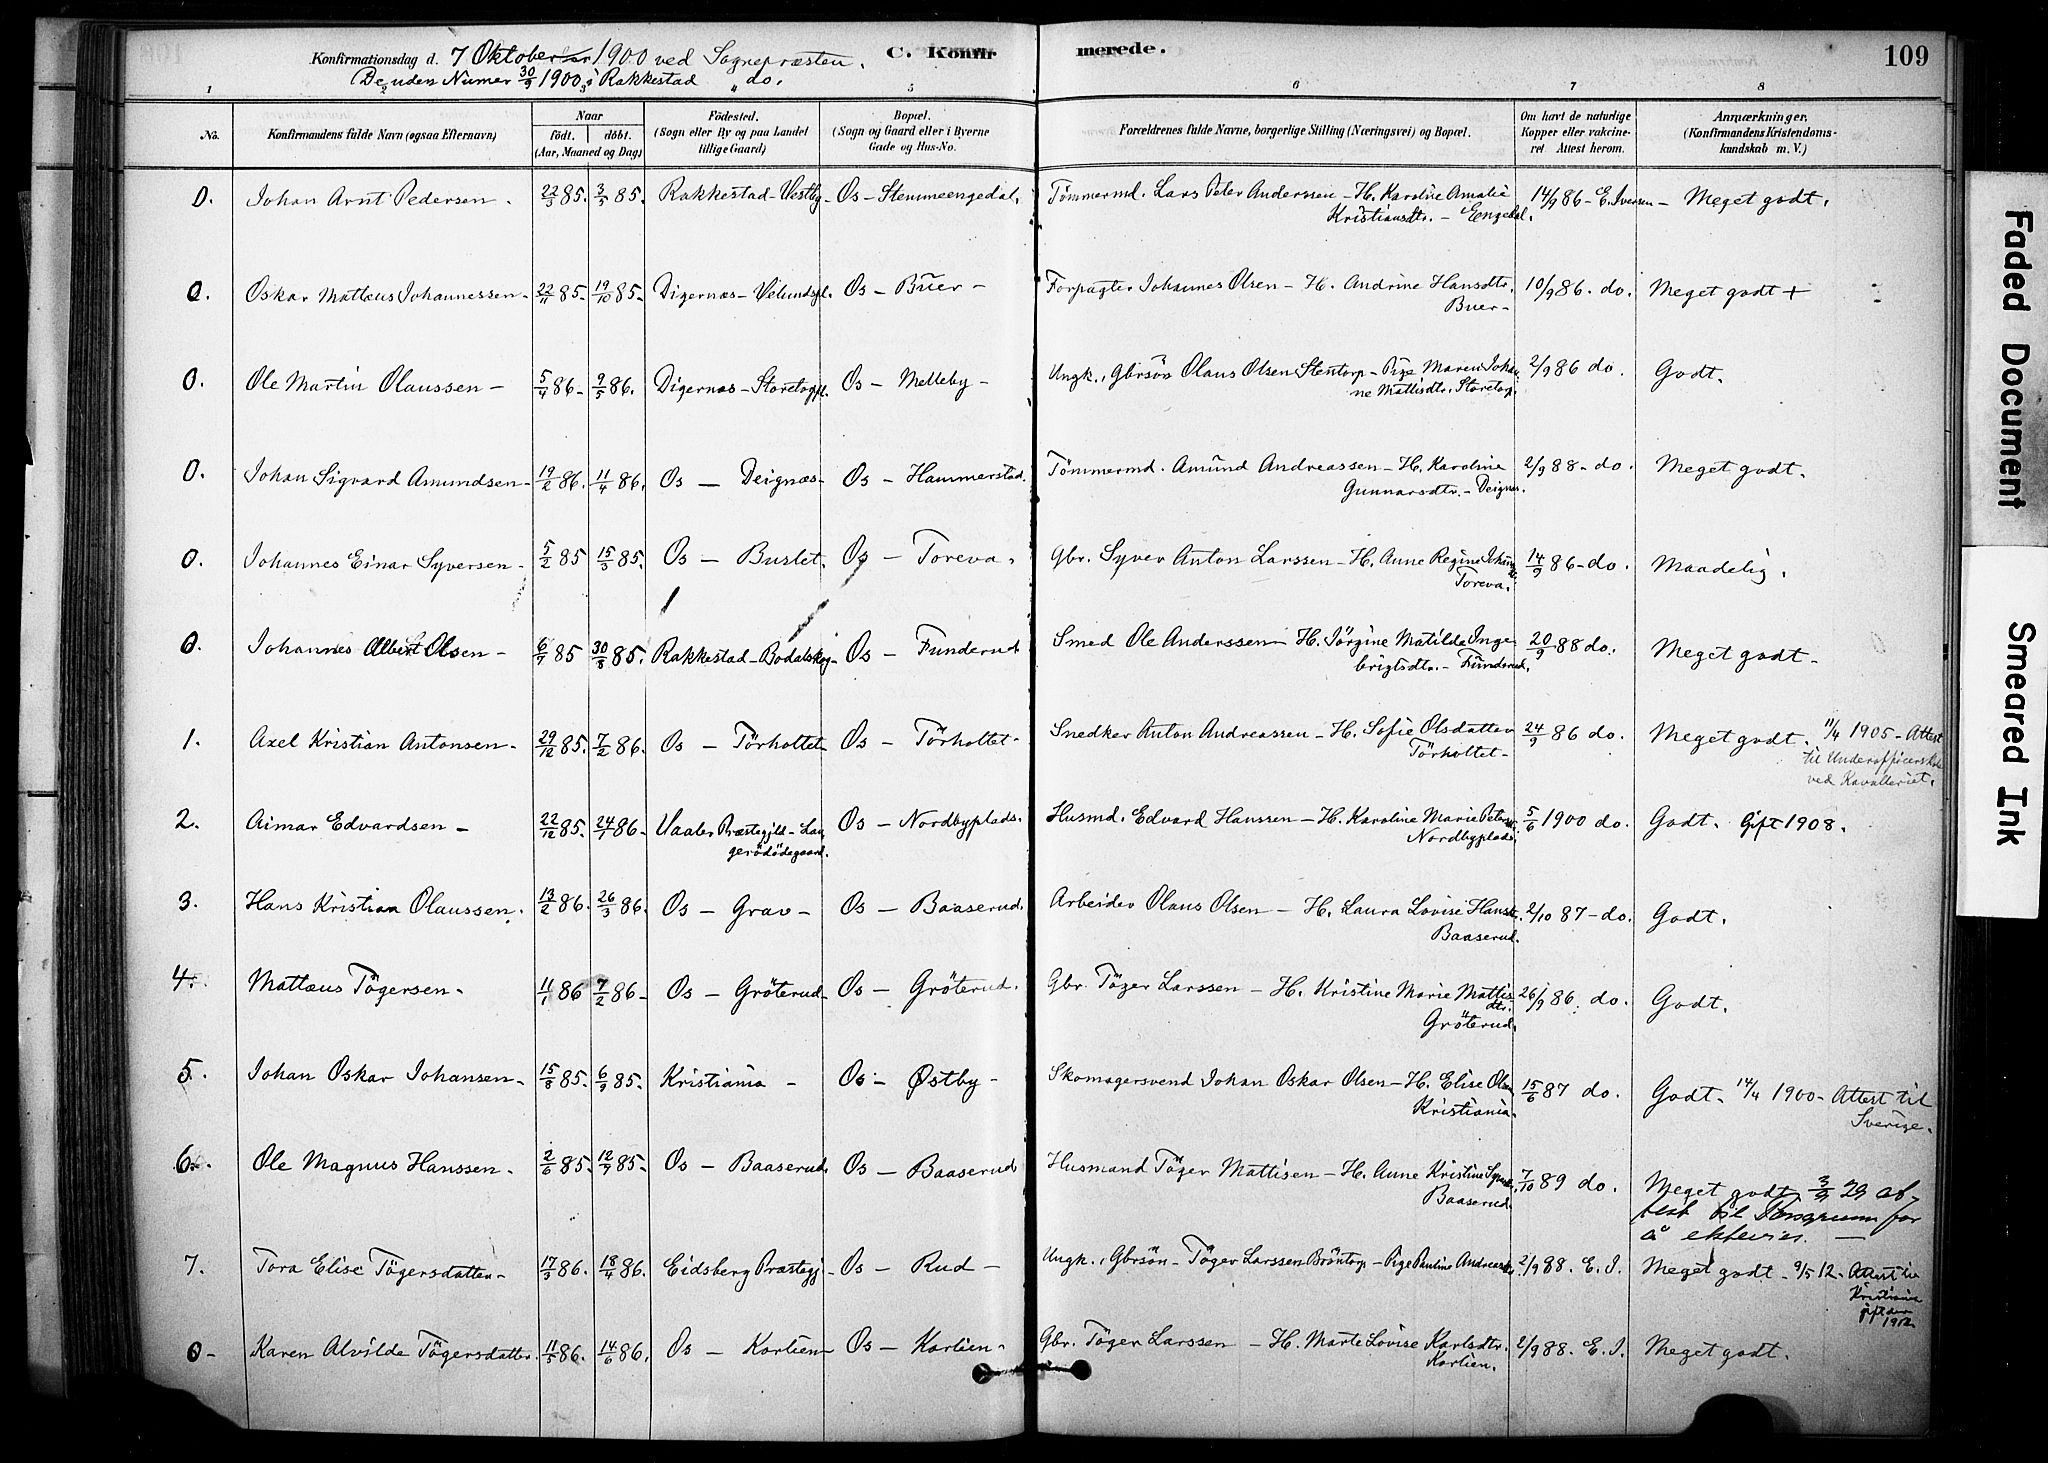 Konfirmationsdag d. 7 Oktober 1900 ved Sognepræsten. C. Konfirmerede. 109
De uden Numer 30/9 1900 i Rakkestad " do.
1 2 3 4 5 6 7 8
No. Konfirmandens fulde Navn (ogsaa Efternavn) Naar født. døbt. (Aar, Maaned og Dag) Fødested. (Sogn eller By og paa Landet tillige Gaard) Bopæl. (Sogn og Gaard eller i Byerne Gade og Hus-No. Forældrenes fulde Navne, borgerlige Stilling (Næringsvei) og Bopæl. Om havt de naturlige Kopper eller vakcineret Attest herom. Anmærkninger. (Konfirmandens Kristendomskundskab m. V.)
0. Johan Arnt Pedersen. 22/3 85. 3/5 85. Rakkestad-Vestby- Os - Stemmeengedal. Tömmermd. Lars Peter Anderssen - H. Karoline Amalie 14/9 86 - E. Iversen - Meget godt.
Kristiansdtr. - Engedal.
0. Oskar Mattæus Johannessen - 22/11 85. 19/10 85. Digernæs - Os - Buer - Forpagter Johannes Olsen - H. Andrine Hansdtr. 10/9 86. do. Meget godt +
Buer -
0. Ole Martin Olaussen - 5/4 86 - 9/5 86. Digernæs - Storetoppl. Os - Melleby - Ungk., Gbrsön Olaus Olsen Stentorp - Pige Maren Johan 2/9 86 do. Godt.
ne Mattisdtr. Storetop.
0. Johan Sigvard Amundsen - 19/2 86. 11/4 86. Os - Deignæs - Os - Hammerstad. Tömmermd. Amund Andreassen - H. Karoline 2/9 88 - do. Meget godt.
Gunnarsdtr. - Deignes.
0. Johannes Einar Syversen - 5/2 85 15/3 85. Os - Buslet. Os - Toreva. Gbr. Syver Anton Larssen - H. Anne Regine 14/9 86 - do. Maadelig.
Toreva.
0. Johannes Albert Olsen - 6/7 85 30/8 85. Rakkestad - Bodalskog - Os - Funderud Smed Ole Anderssen - H. Jörgine Matilde Inge 20/9 88 do. Meget godt -
brigtsdtr. - Funderud.
1. Axel Kristian Antonsen - 29/12 85. 7/2 86. Os - Törholtet - Os - Törholtet - Snedker Anton Andreassen - H. Sofie Olsdatter 24/9 86 do. Meget godt. 11/4 1905 - Attest
Törholtet - til Underofficerskole
ved Kavalleriet.
2. Aimar Edvardsen - 22/12 85. 24/1 86. Vaaler Præstegjeld - Lan Os - Nordbyplads. Husmd. Edvard Hanssen - H. Karoline Marie 5/6 1900 do. Godt. Gift 1908.
gerödödegaard. Nordbyplads.
3. Hans Kristian Olaussen. 13/2 86. 26/3 86. Os - Grav - Os - Baaserud. Arbeider Olaus Olsen - H. Laura Lovise Hansdtr. 2/10 87 - do. Godt.
Baaserud.
4. Mattæus Tögersen - 11/1 86 7/2 86 - Os - Gröterud - Os - Gröterud. Gbr. Töger Larssen - H. Kristine Marie Mattis 26/9 86. do. Godt.
dtr.
Gröterud.
5. Johan Oskar Johansen - 15/8 85. 6/9 85. Kristiania - Os - Østby - Skomagersvend Johan Oskar Olsen - H. Elise 15/6 87 do. Godt. 14/4 1900 - Attest til
Kristiania. Sverige.
6. Ole Magnus Hanssen - 2/6 85. 12/7 85 - Os - Baaserud. Os - Baaserud Husmand Töger Mattisen - H. Anne Kristine 7/10 89 do. Meget godt. 3/9 29 at-
Baaserud. test til for
å ektevies. -
7. Tora Elise Tögersdatter - 17/3 86. 18/4 86. Eidsberg Præstegj - Os - Rud - Ungk., Gbrsön - Töger Larssen Bröntorp - Pige Pauline 2/9 88. E. I. Meget godt - 9/5 12. Attest til
Kristiania
gift der
1912
0 - Karen Alvilde Tögersdatter. 11/5 86. 14/6 86. Os - Korlien - Os - Korlien - Gbr. Töger Larssen - H. Marte Lovise Karlsdtr. 2/9 88. E. I. Meget godt.
Korlien.
Faded Document
Smeared Ink